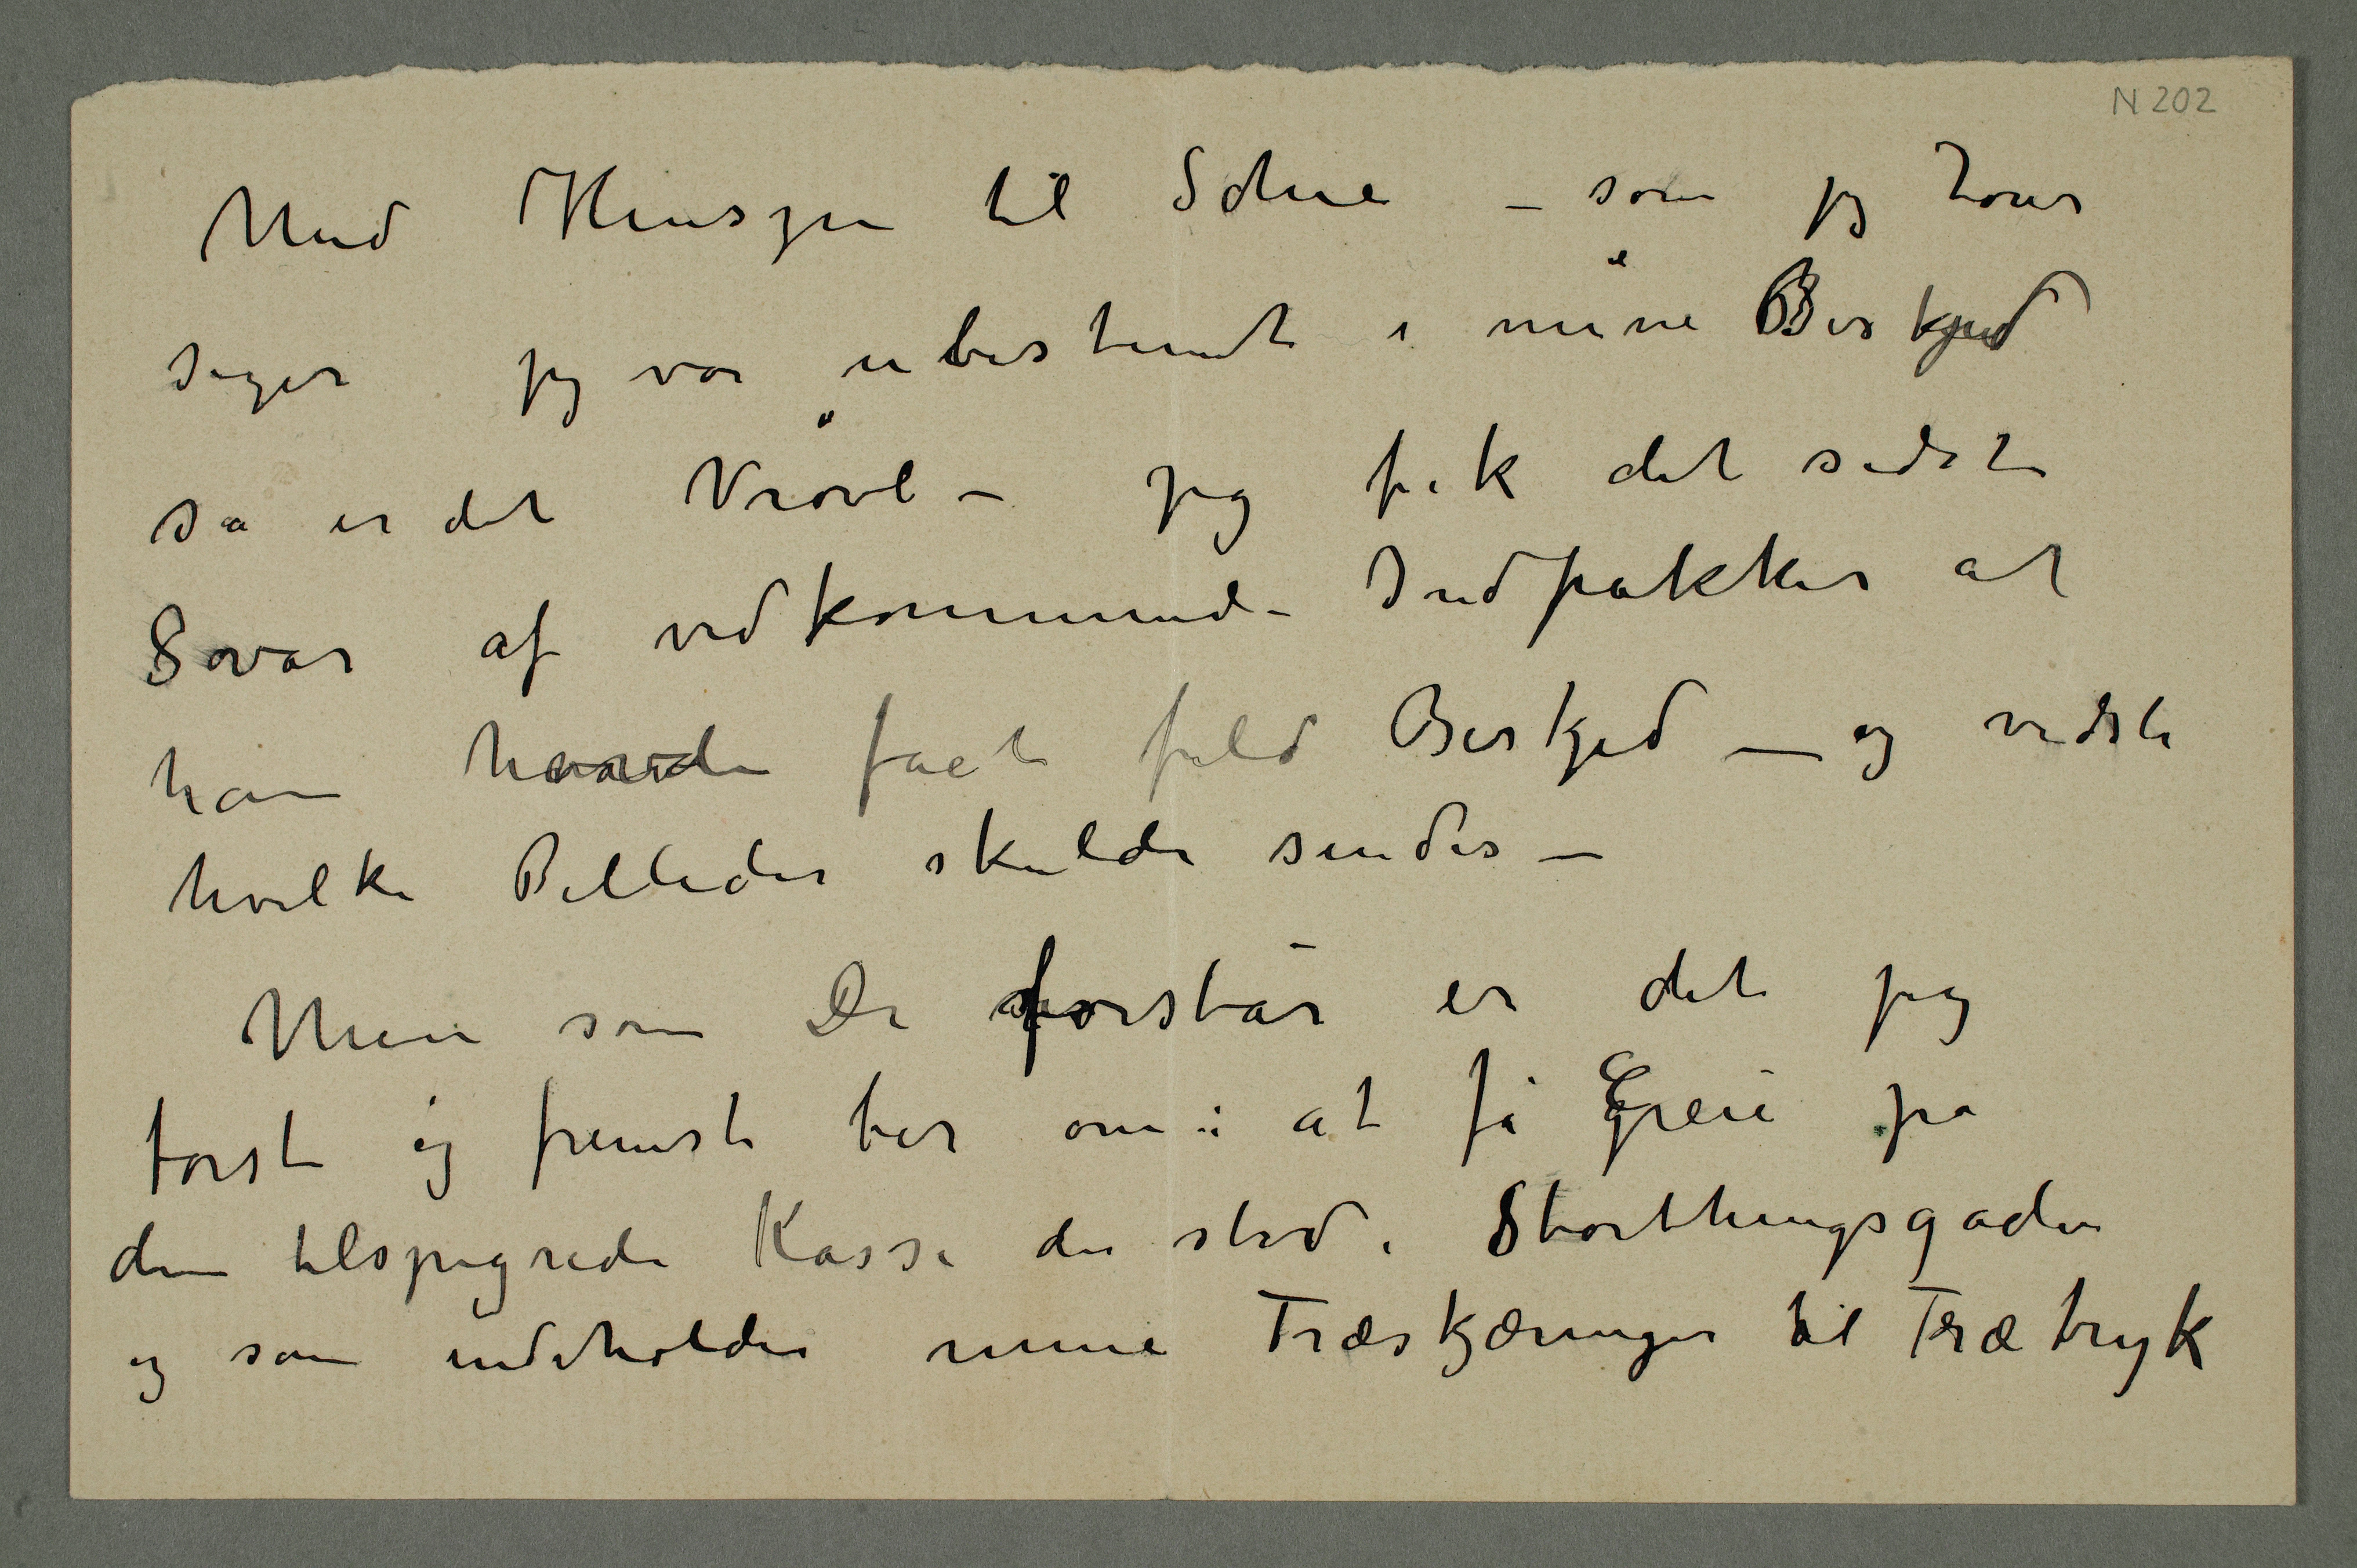 N 202
Med Hensyn til Schie – som jeg hører
siger jeg var ubestemt i mine Beskjed
så er det Vrøvl – jeg fik det sidste
Svar af vedkommende Indpakker at
han havde fået fuld Beskjed – og vidste
hvilke Billeder skulde sendes –
Men som De forstår er det jeg
først og fremst ber om: at få Greie på
den tilspigrede Kasse der stod i Storthingsgaden
og som indeholder mine Træskjæringer til Trætryk